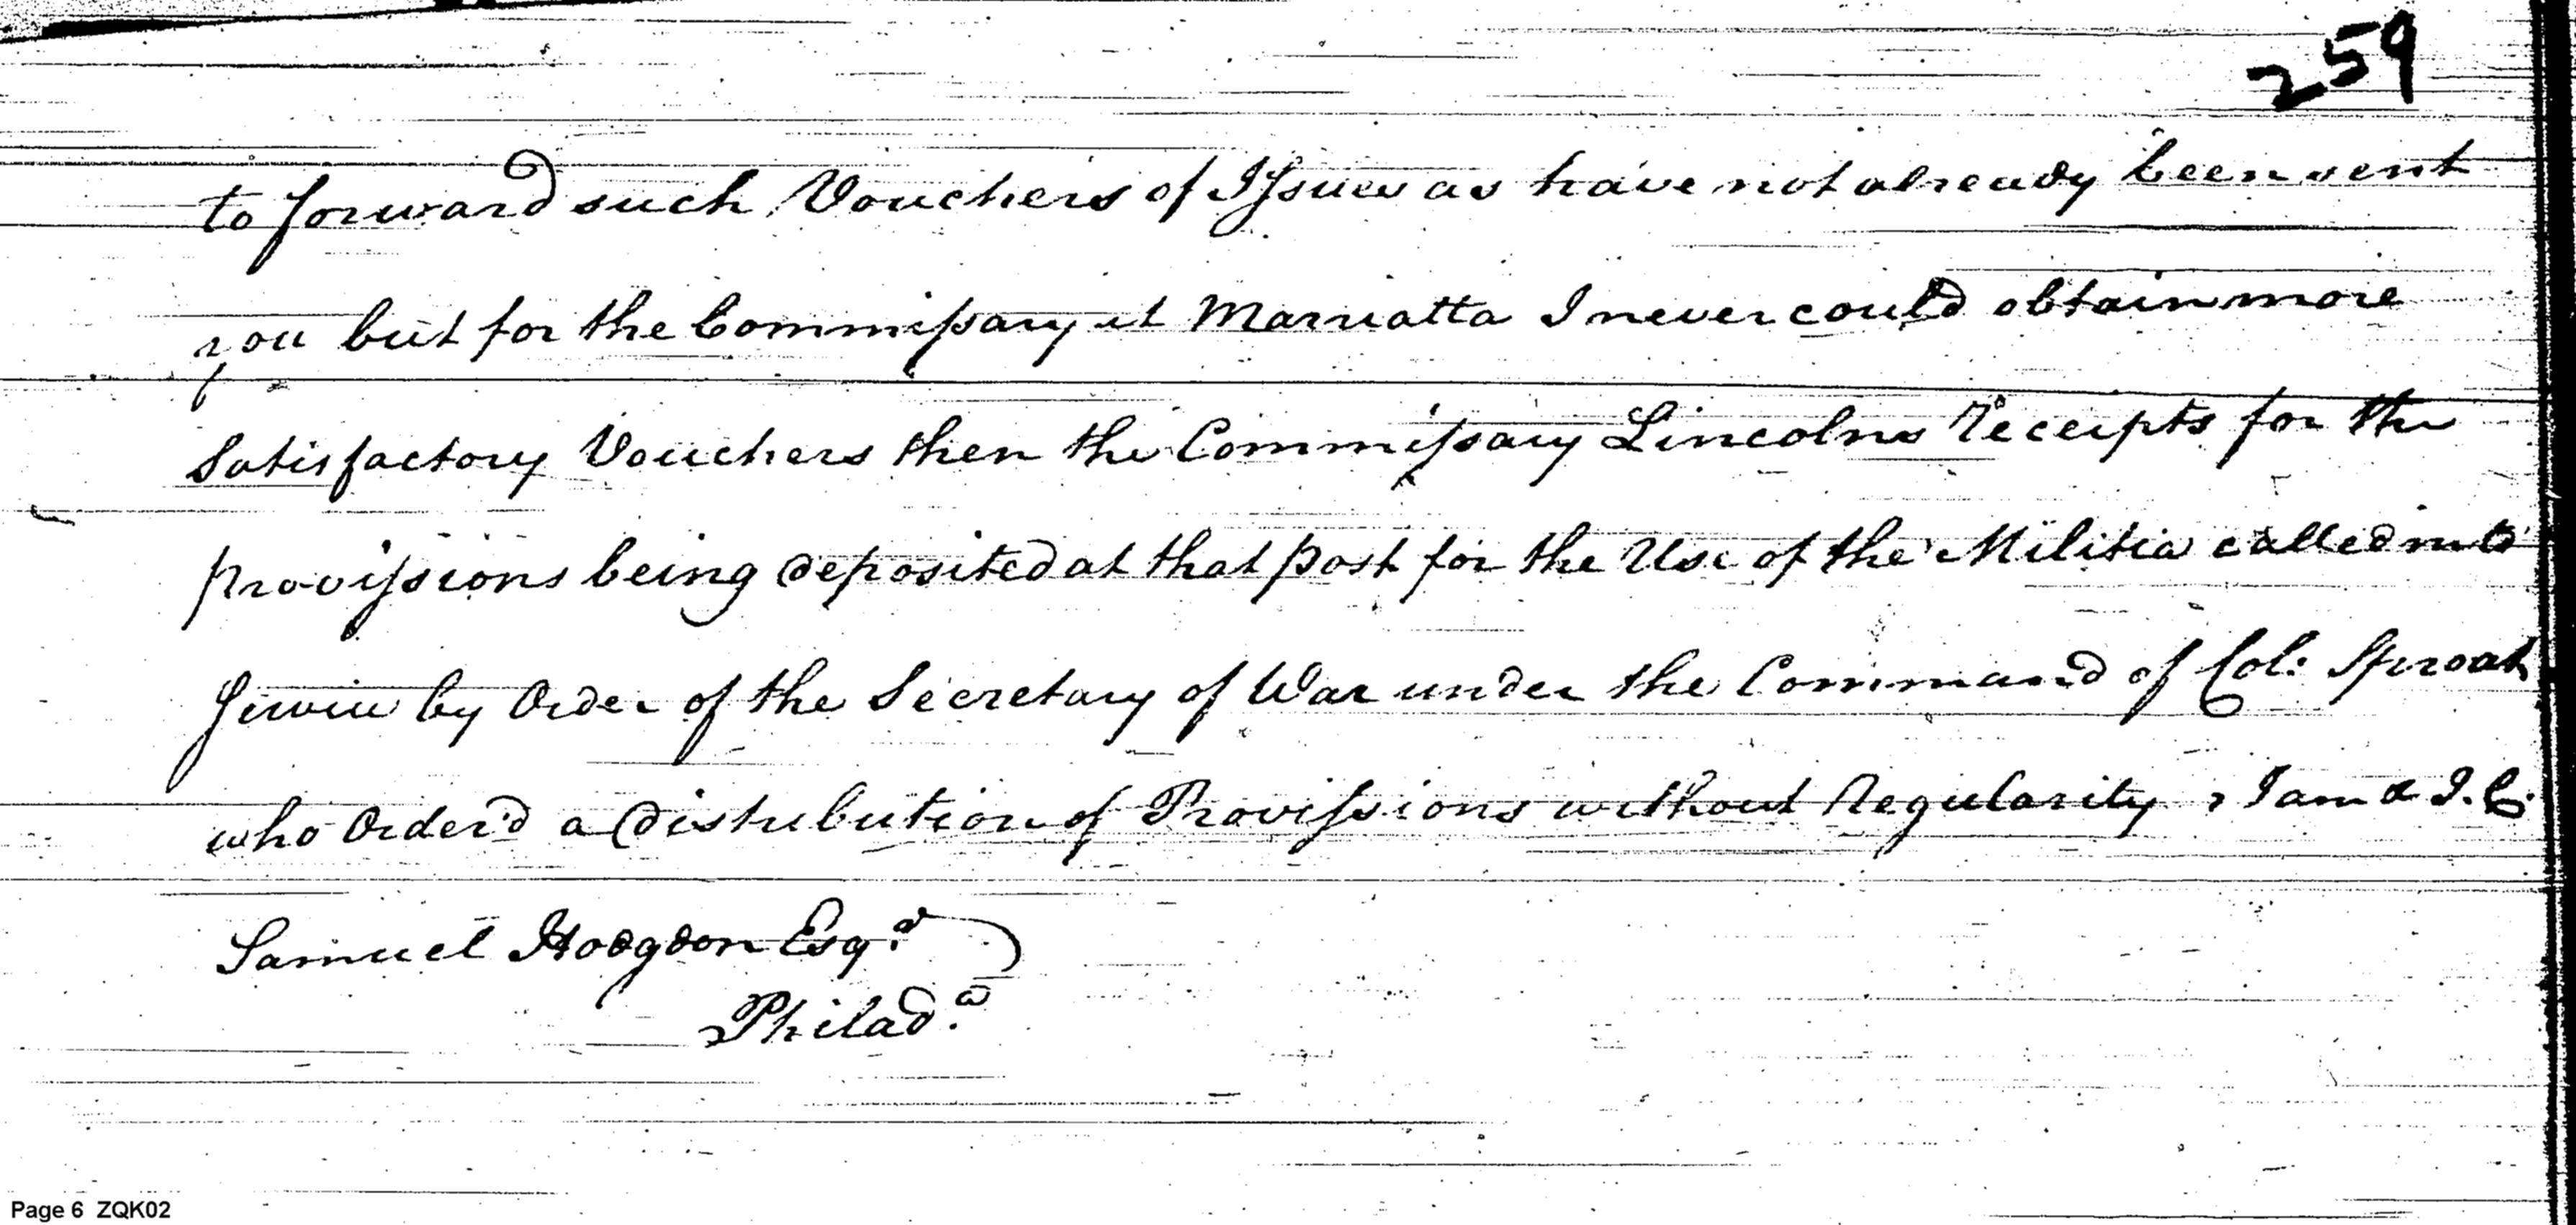 259
to forward such Vouchers of Issues as have not already been sent
you but for the Commissary at Marriatta I never could obtain more
Satisfactory Vouchers then the Commissary Lincolns Receipts for the
provissions being deposited at that post for the Use of the Militia called into
Service by Order of the Secretary of War under the Command of Col: Sproat
who Order'd a Distribution of Provissions without Regularity, I am & I. C.
Samuel Hodgdon Esq.r
Philad.a
Page 6 ZQK02